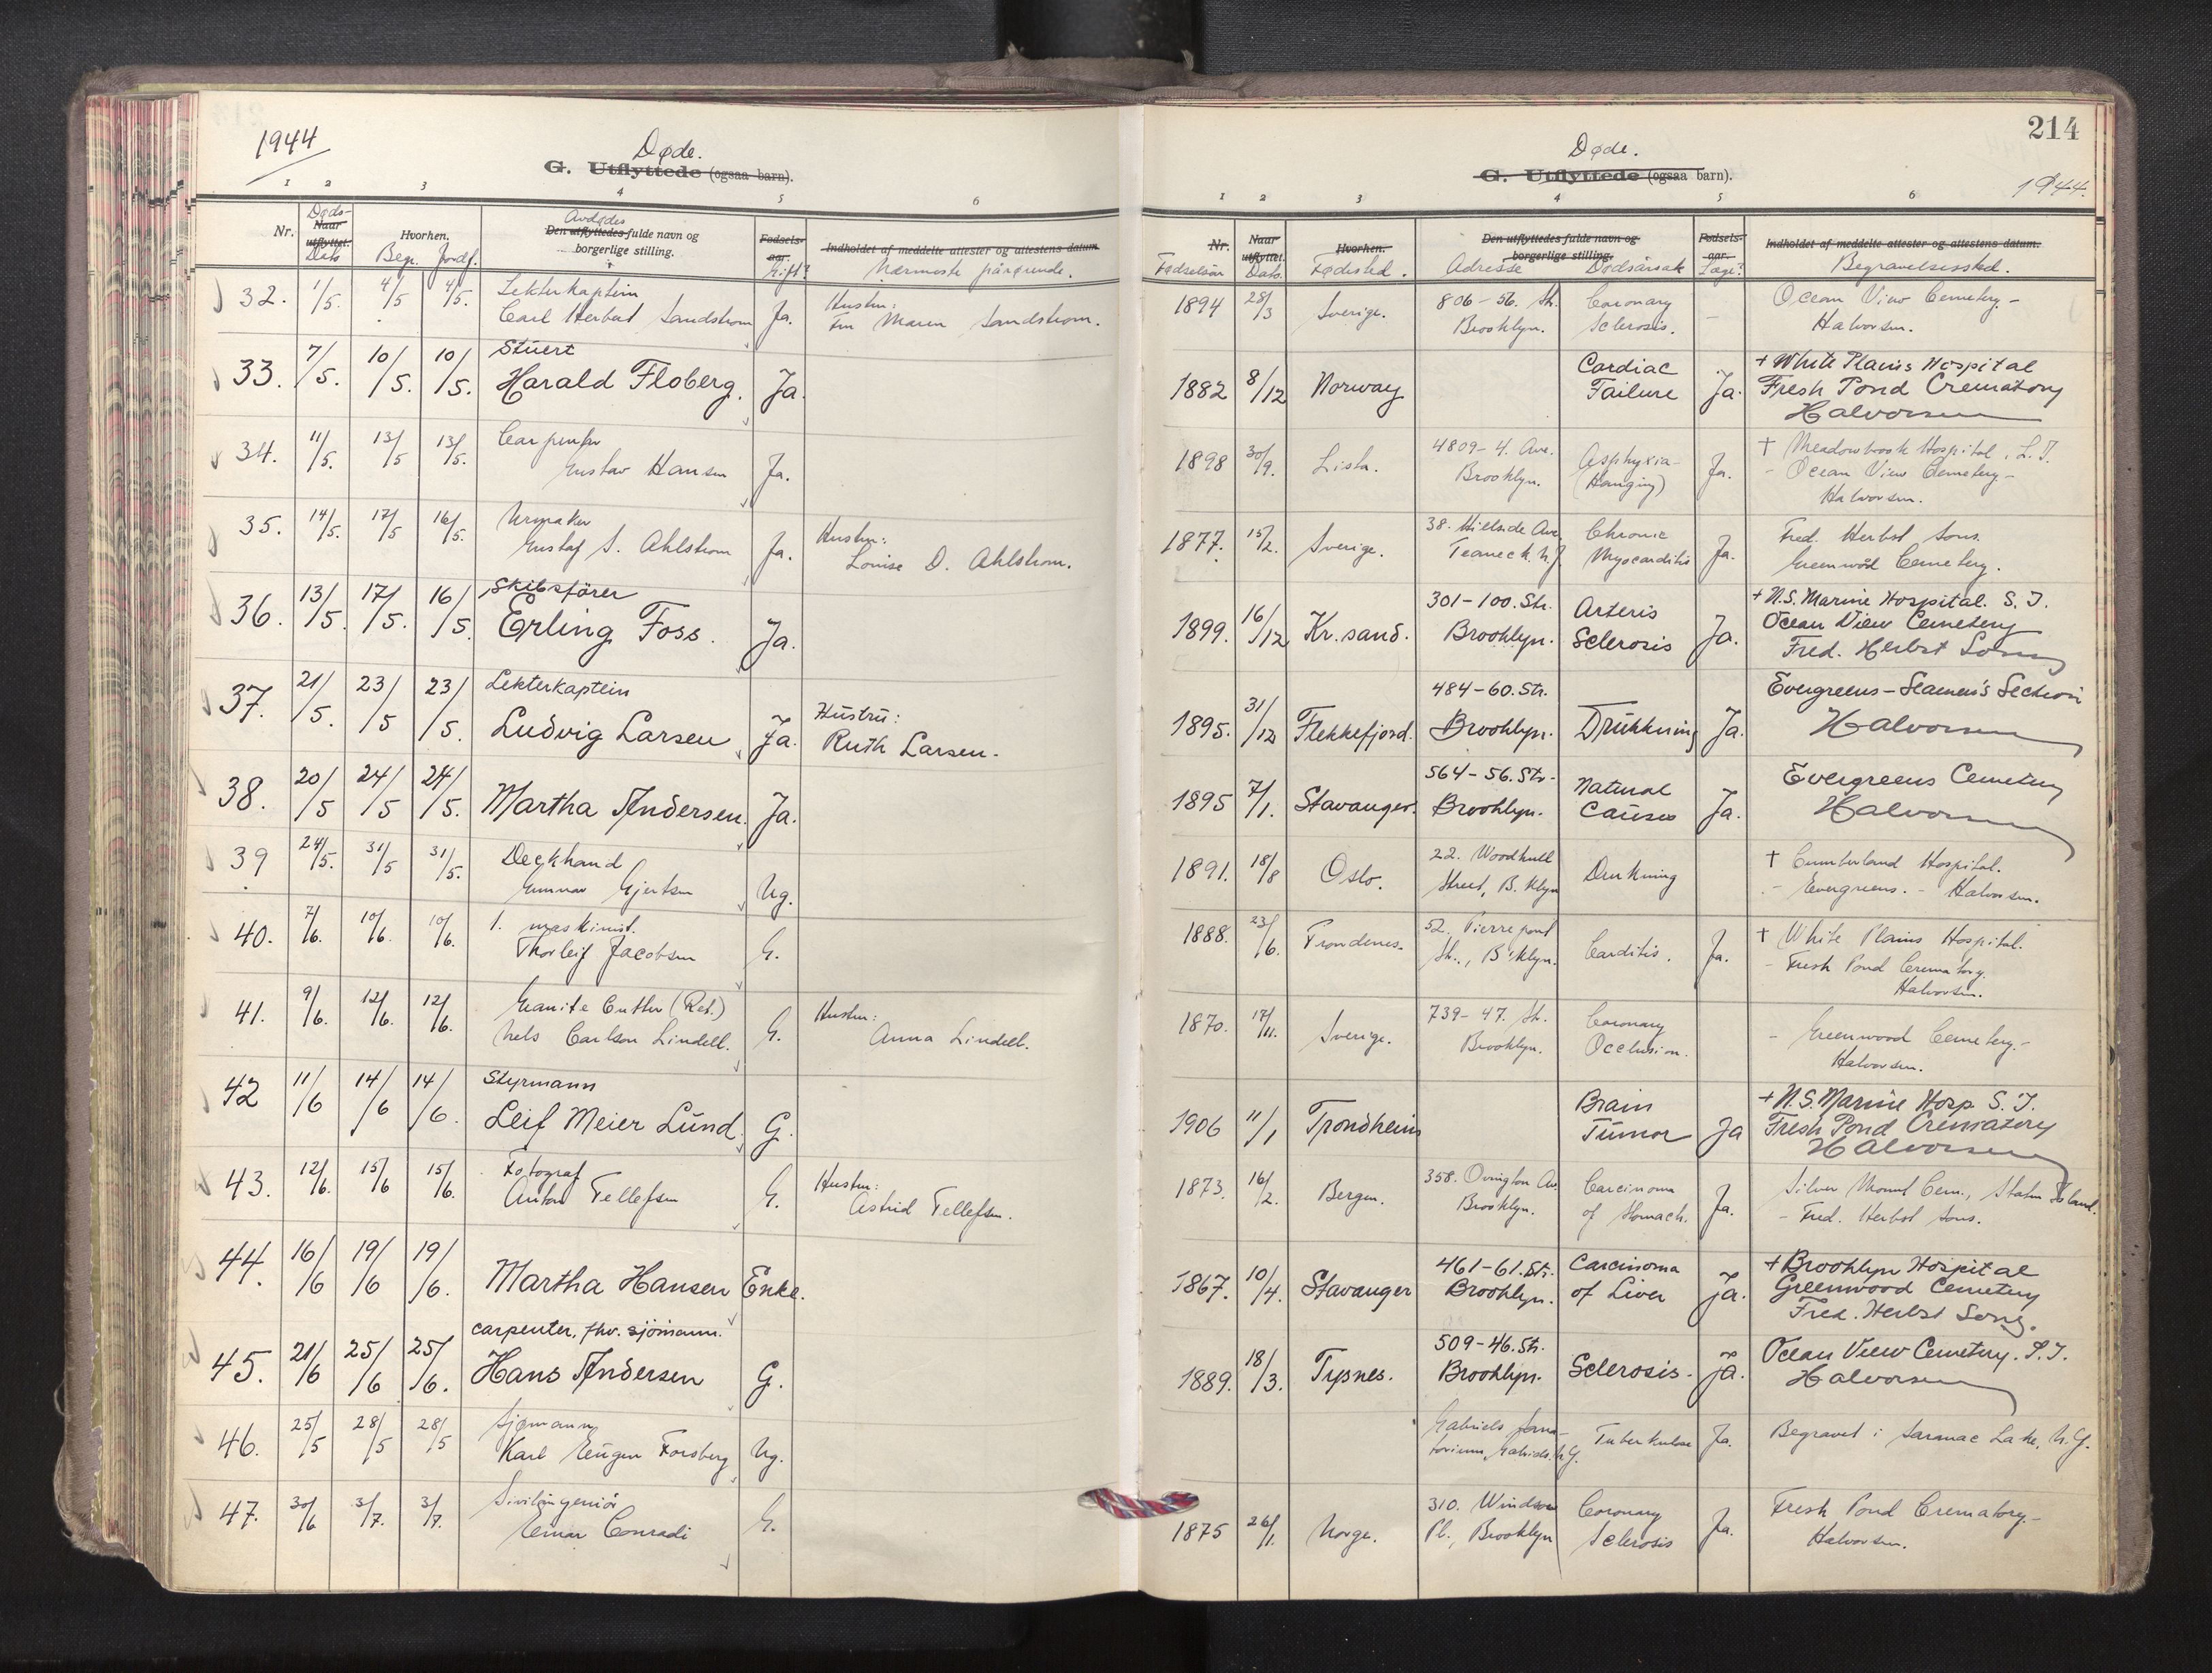 1944
Døde.
G. Utflyttede (ogsaa barn).
1 2 3 4 5 6
Nr.
Døds-
Naar utflyttet.
Dato
Hvorhen.
Begr. Jordf.
Avdødes
Den utflyttedes fulde navn og borgerlige stilling.
Fødsels-aar.
Gift?
Indholdet af meddelte attester og attestens datum.
Nærmeste pårørende.
32. 1/5. 4/5 4/5. Lekterkaptein
Carl Herbert Sandstrom Ja. Hustru:
Fru Maren Sandstrom.
33. 7/5. 10/5. 10/5. Stuert
Harald Floberg. Ja.
34. 11/5. 13/5 13/5. Carpenter
Gustav Hansen Ja.
35. 14/5. 17/5 16/5. Urmaker
Gustaf S. Ahlstrom Ja. Hustru:
Louise D. Ahlstrom.
36. 13/5. 17/5. 16/5. Skibsförer
Erling Foss. Ja.
37. 21/5. 23/5 23/5. Lekterkaptein
Ludvig Larsen Ja. Hustru:
Ruth Larsen.
38. 20/5 24/5 24/5. Martha Andersen. Ja.
39 24/5. 31/5 31/5. Deckhand
Gunnar Gjertsen Ug.
40. 7/6. 10/6. 10/6. 1. maskinist.
Thorleif Jacobsen G.
41. 9/6. 12/6. 12/6. Granite Cutter (Ret.)
Nels Carlson Lindell. G. Hustru:
Anna Lindell.
42 11/6 14/6 14/6. Styrmann
Leif Meier Lund. G.
43. 12/6. 15/6 15/6. Fotograf
Anton Tellefsen G. Hustru:
Astrid Tellefsen.
44. 16/6 19/6 19/6. Martha Hansen Enke.
45. 21/6 25/6 25/6. carpenter, fhv. sjömann.
Hans Andersen G.
46. 25/5 28/5 28/5 Sjømann
Karl Eugen Forsberg Ug.
47. 30/6 3/7. 3/7. Sivilingeniör
Einar Conradi G.
214
Døde.
G. Utflyttede (ogsaa barn).
1944.
1 2 3 4 5 6
Nr.
Fødselsår
Naar utflyttet.
Dato.
Hvorhen.
Fødested.
Den utflyttedes fulde navn og borgerlige stilling.
Adresse Dødsårsak
Fødsels-aar.
Læge?
Indholdet af meddelte attester og attestens datum.
Begravelsessted.
1894 28/3 Sverige. 806 - 56. St. Brooklyn. Coronary Sclerosis. - Ocean View Cemetery -
Halvorsen.
1882 8/12 Norway Cardiac Failure Ja. + White Plains Hospital
Fresh Pond Crematory
Halvorsen
1898 30/9. Lista. 4809 - 4. Ave. Brooklyn. Asphyxia - (Hanging) Ja. † Meadowbrook Hospital, L.I.
- Ocean View Cemetery -
Halvorsen.
1877. 15/2. Sverige. 38. Hillside Ave. Teaneck N.J. Chronic Myocarditis Ja. Fred. Herbst Sons.
Greenwood Cemetery.
1899. 16/12 Kr.sand. 301 - 100. Str. Brooklyn. Arterio Sclerosis Ja. + U.S. Marine Hospital. S.I.
Ocean View Cemetery
Fred. Herbst Sons
1895. 31/12 Flekkefjord. 484 - 60. Str. Brooklyn. Drukkning Ja. Evergreens - Seamen's Section
Halvorsen
1895 7/1. Stavanger. 564 - 56. Str. Brooklyn. Natural Causes Ja. Evergreens Cemetery
Halvorsen
1891. 18/8 Oslo. 22. Woodhull Street, B.klyn Drukning † Cumberland Hospital.
- Evergreens. - Halvorsen.
1888. 23/6. Trondenes. 52. Pierrepont St., B'klyn. Carditis. Ja. † White Plains Hospital.
- Fresh Pond Crematory.
Halvorsen.
1870. 17/11. Sverige. 739 - 47. St. Brooklyn. Coronary Occlusion. - Greenwood Cemetery. -
Halvorsen.
1906 11/1 Trondheim Brain Tumor Ja + U.S. Marine Hosp. S.I.
Fresh Pond Crematory
Halvorsen
1873. 16/2. Bergen. 358. Ovington Av. Brooklyn. Carcinoma of Stomach. Ja. Silver Mount Cem., Staten Island.
- Fred. Herbst Sons.
1867. 10/4. Stavanger 461 - 61. Str. Brooklyn. Carcinoma of Liver Ja. + Brooklyn Hospital
Greenwood Cemetery
Fred. Herbst Sons.
1889. 18/3. Tysnes. 509 - 46. Str. Brooklyn. Sclerosis. Ja. Ocean View Cemetery. S.I.
Halvorsen
Gabriels Sanatorium, Gabriels. N.Y. Tuberkulose Ja. Begravet i Saranac Lake, N.Y.
1875 26/1. Norge. 310. Windsor Pl., Brooklyn Coronary Sclerosis Ja. Fresh Pond Crematory. -
Halvorsen.